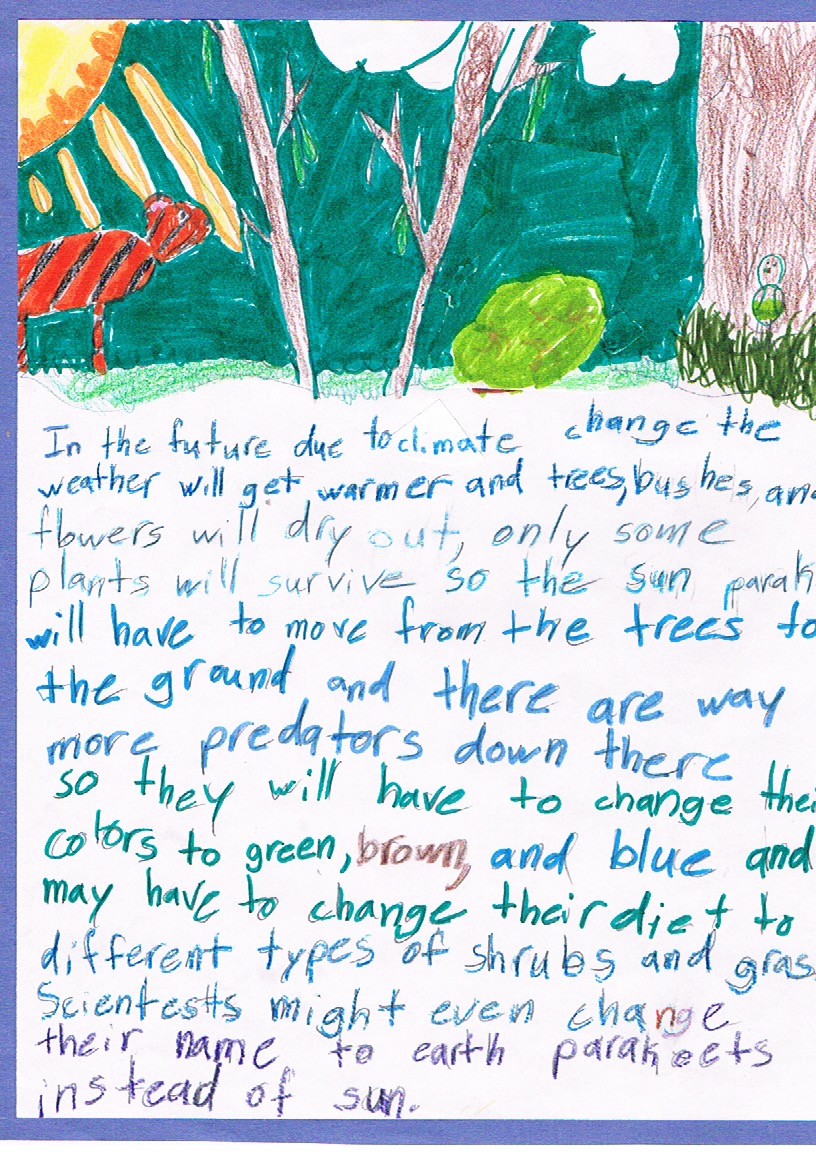 In the future due to climate change the
weather will get warmer and trees, bushes, an
flowers will dry out, only some
plants will survive so the sun parak
will have to move from the trees to
the ground and there are way
more predators down there
so they will have to change thei
colors to green, brown, and blue and
may have to change their diet to
different types of shrubs and gras
Scientests might even change
their name to earth parakeets
instead of sun.